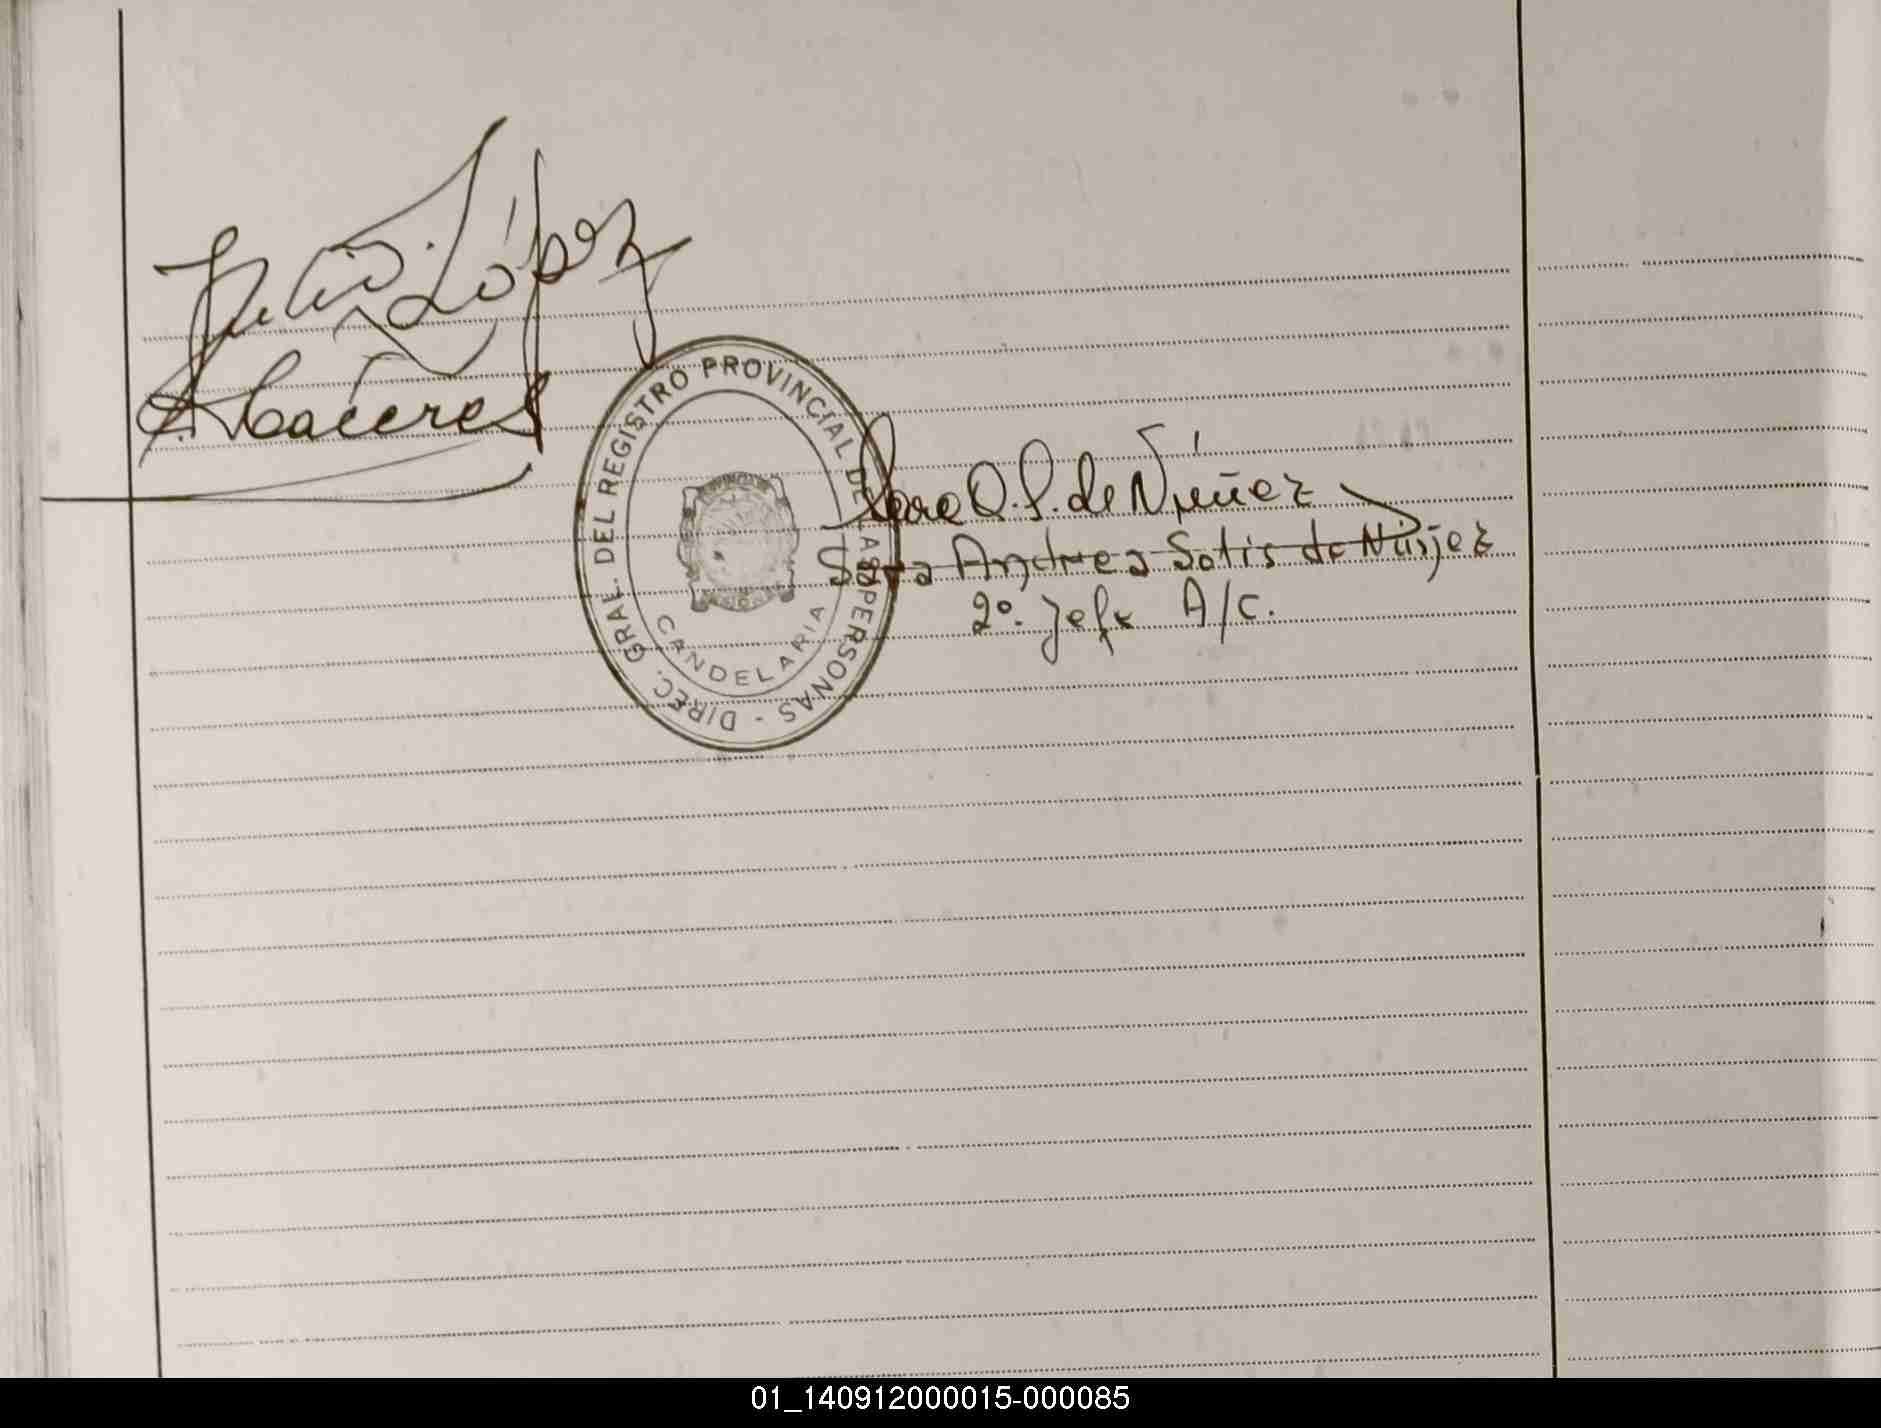 Julio López
A. Caceres
DIREC. GRAL. DEL REGISTRO PROVINCIAL DE LAS PERSONAS -
CANDELARIA
Q. S. de Núñez
Sara Andrea Solis de Nuñez
2º. Jefe A/C.
01_140912000015-000085